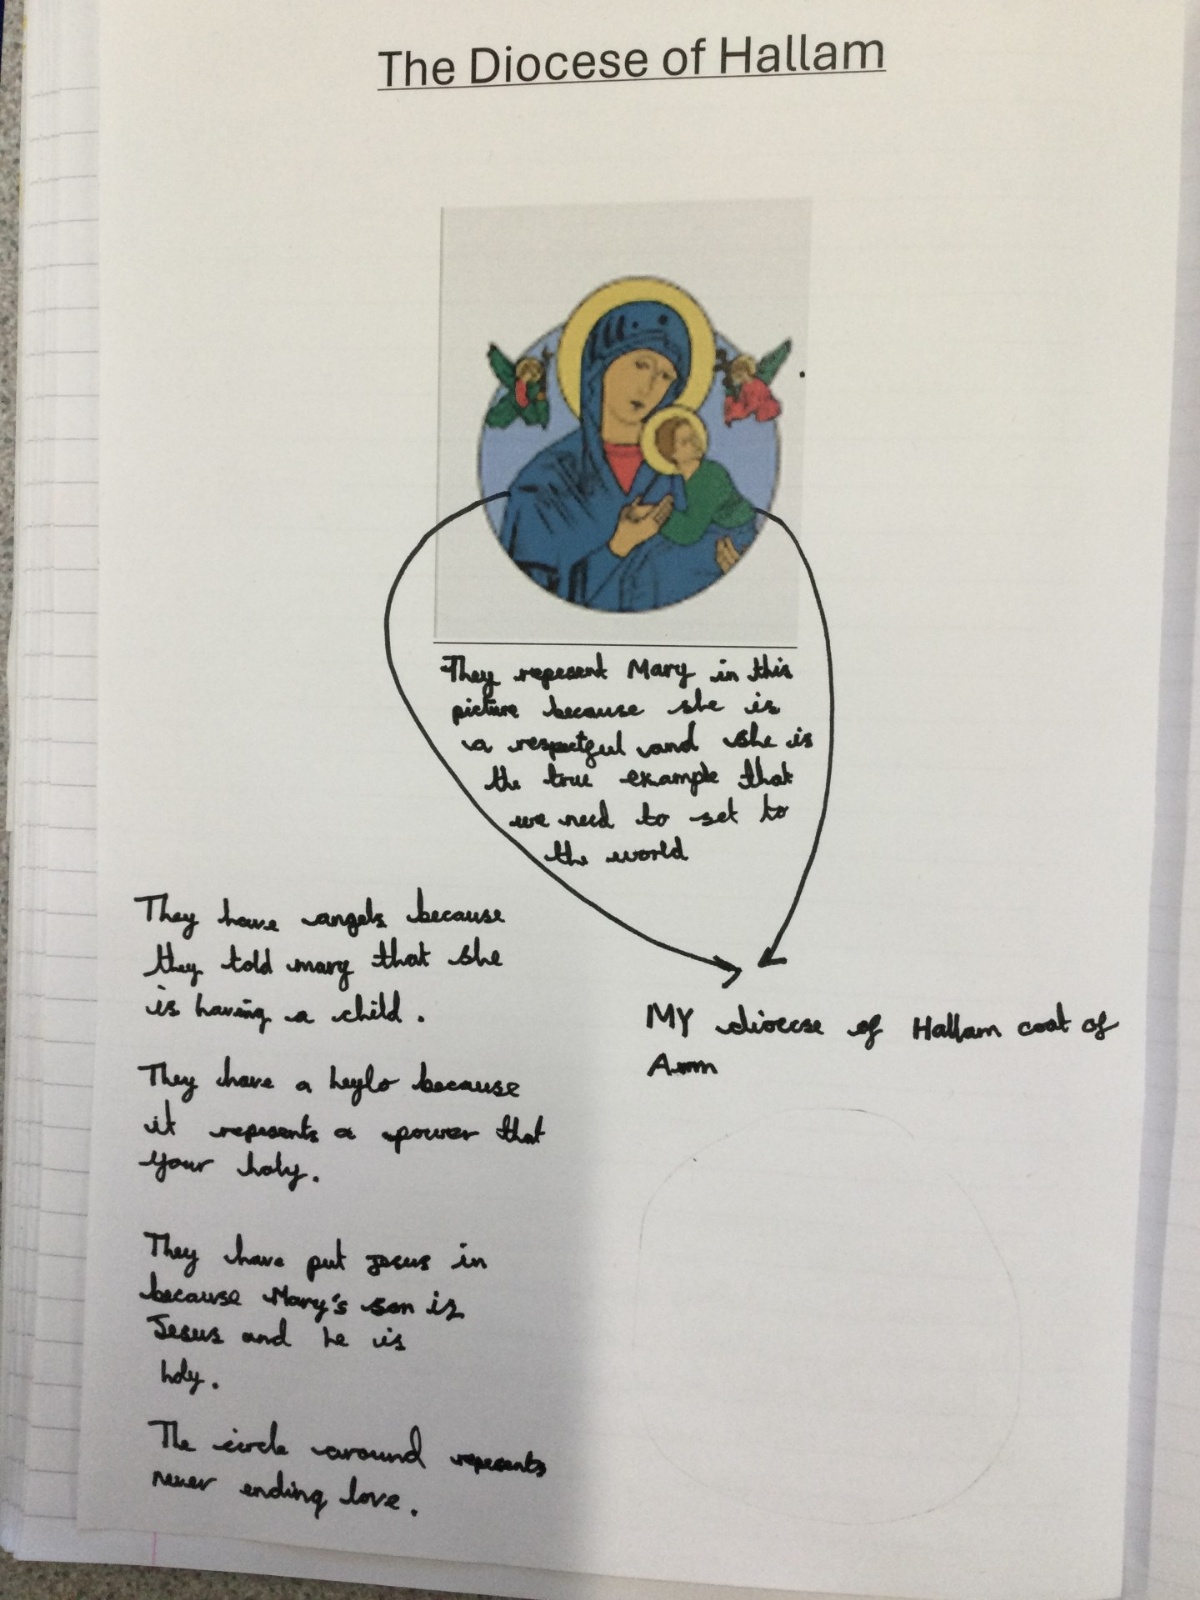 The Diocese of Hallam
They repesent Mary in this
picture because she is
a respectful and she is
the true example that
we need to set to
the world
They have angels because
they told mary that she
is having a child.
They have a heylo because
it repesents a power that
your holy.
They have put Jesus in
because Mary's son is
Jesus and he is
holy.
The circle around repesents
never ending love.
MY diocese of Hallam coat of
Arm